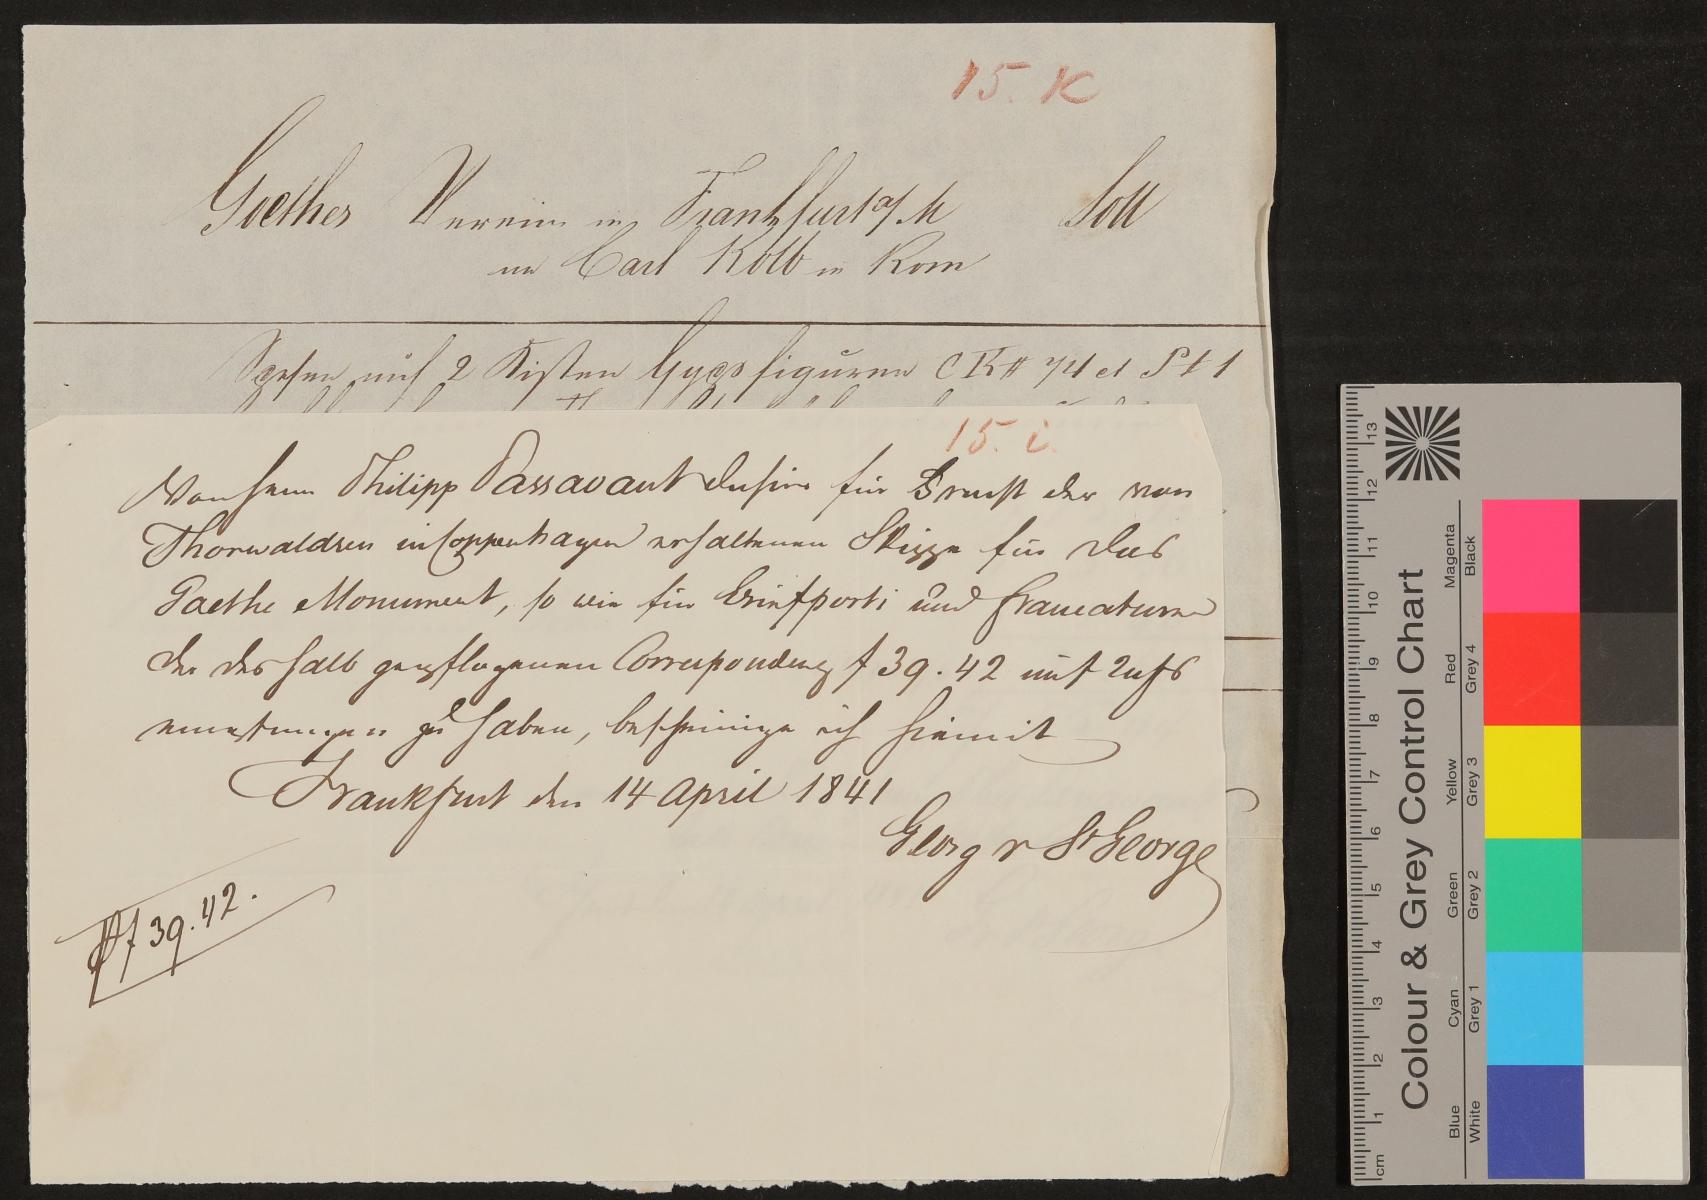 15. K
Goethes Verein in Frankfurt a/M Soll
an Carl Kolb in Rom
Spesen auf 2 Kisten Gypsfiguren C K # 74 et P t 1
15. i.
Von Herrn Philipp Passavant dahier für Fracht der von
Thorwaldsen in Coppenhagen erhaltenen Skizze für das
Goethe Monument, so wie für Briefporti und Francaturen
der deshalb gepflogenen Correspondenz f 39. 42 auf
empfangen zu haben, bescheinige ich hiemit
Frankfurt den 14 April 1841
Georg v St George
f 39. 42.
Colour & Grey Control Chart
Blue Cyan Green Yellow Red Magenta
White Grey 1 Grey 2 Grey 3 Grey 4 Black
cm 1 2 3 4 5 6 7 8 9 10 11 12 13